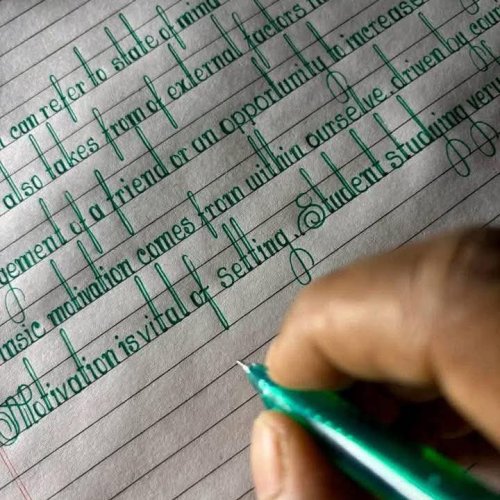 can refer to state of mind
also takes from of external factors
gement of a friend or an opportunity to increase
insic motivation comes from within ourselve. driven by
Motivation is vital of setting. Student studying